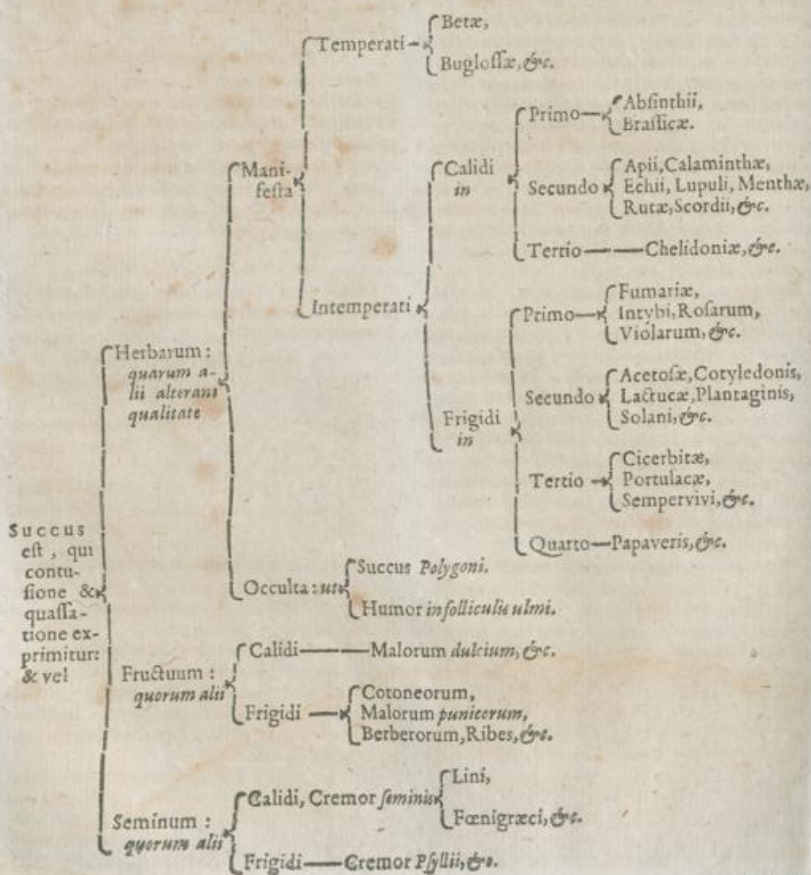 Succus
est, qui
contu-
sione &
quassa-
tione ex-
primitur:
& vel
Herbarum :
quarum a-
lii alterant
qualitate
Mani-
festa
Temperati
Betæ,
Buglossæ, &c.
Intemperati
Calidi
in
Primo
Absinthii,
Brassicæ.
Secundo
Apii, Calaminthæ,
Echii, Lupuli, Menthæ,
Rutæ, Scordii, &c.
Tertio
Chelidoniæ, &c.
Frigidi
in
Primo
Fumariæ,
Intybi, Rosarum,
Violarum, &c.
Secundo
Acetosæ, Cotyledonis,
Lactucæ, Plantaginis,
Solani, &c.
Tertio
Cicerbitæ,
Portulacæ,
Sempervivi, &c.
Quarto
Papaveris, &c.
Occulta : ut
Succus Polygoni.
Humor in folliculis ulmi.
Fructuum :
quorum alii
Calidi
Malorum dulcium, &c.
Frigidi
Cotoneorum,
Malorum punicorum,
Berberorum, Ribes, &c.
Seminum :
quorum alii
Calidi, Cremor seminis
Lini,
Fœnigræci, &c.
Frigidi
Cremor Psyllii, &c.